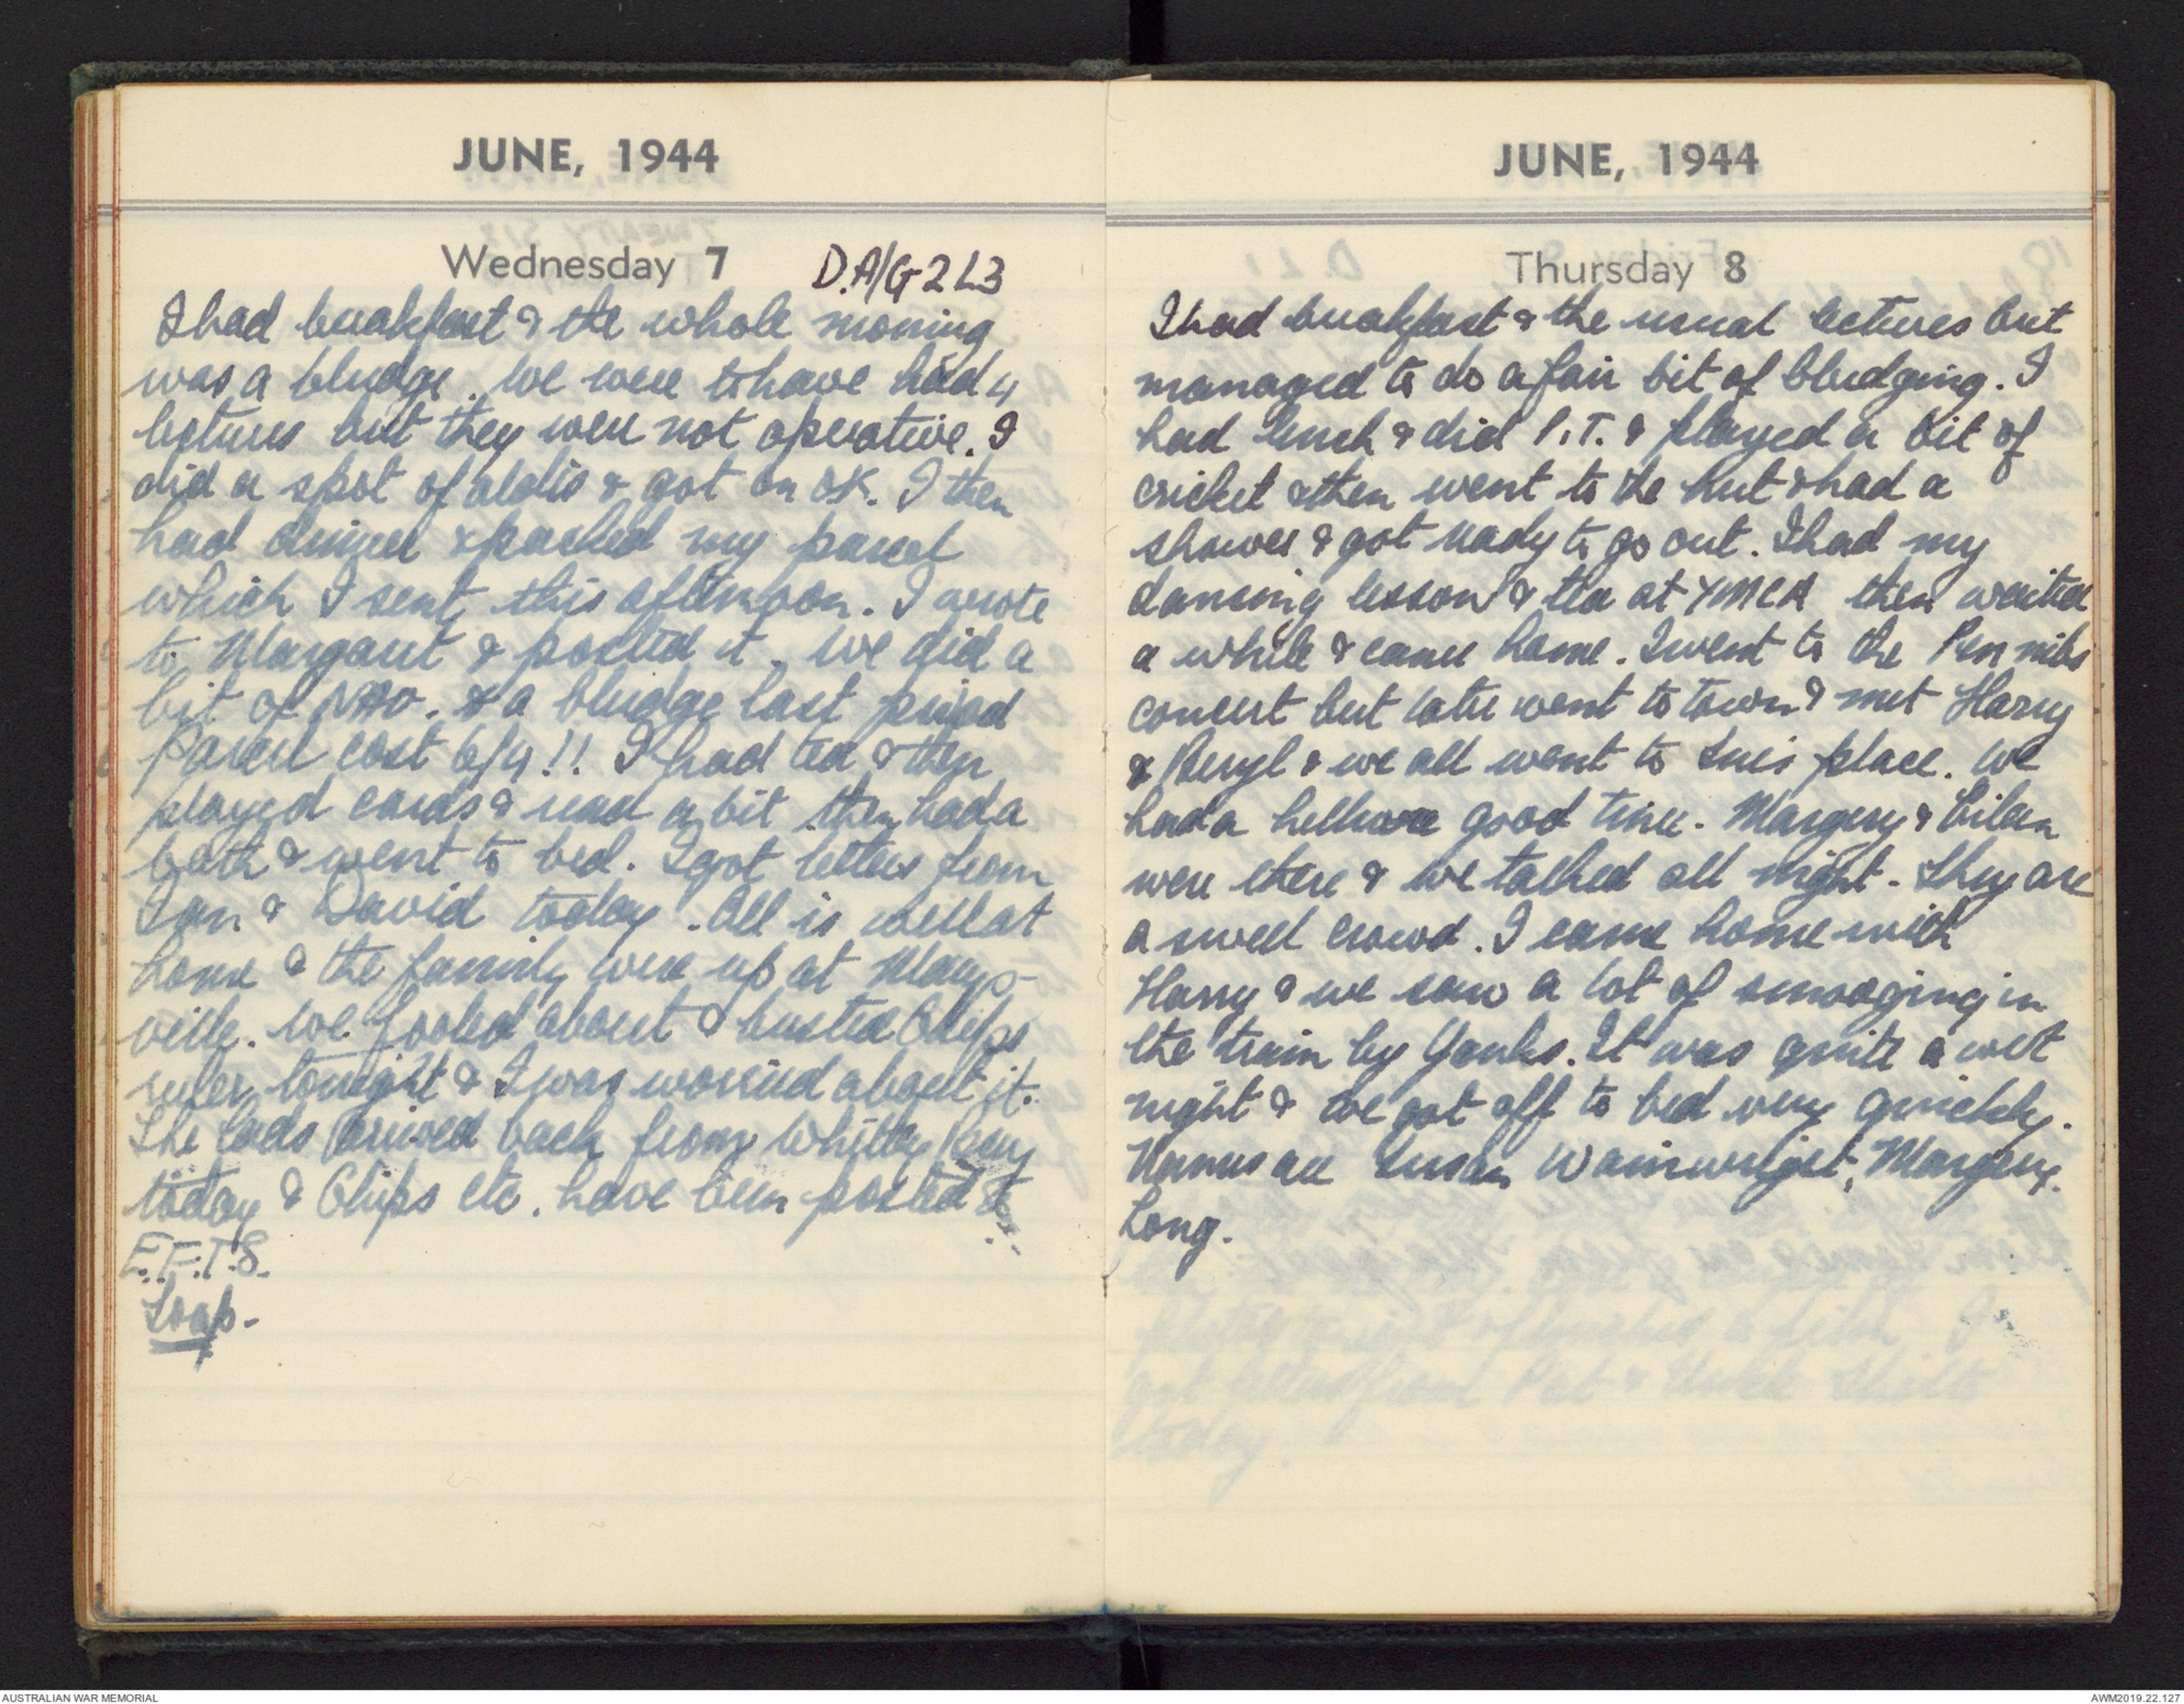 JUNE, 1944
Wednesday 7 D.A/G 2 L3
I had breakfast & the whole morning
was a bludge. We were to have had 4
lectures but they were not operative. I
did a spot of aldis & got on OK. I then
had dinner & packed my parcel
which I sent this afternoon. I wrote
to Margaret & posted it. We did a
bit of NAV. & a bludge last period
Parcel cost 6/4!! I had tea & then
played cards & read a bit then had a
bath & went to bed. I got letters from
Ian & David today. All is well at
home & the family were up at Marys-
ville. We fooled about & busted Chips
ruler tonight & I was worried about it.
The lads arrived back from Whitley Bay
today & Chips etc. have been posted to
E.F.T.S.
Soap.
JUNE, 1944
Thursday 8
I had breakfast & the usual lectures but
managed to do a fair bit of bludging. I
had lunch & did P.T. & played a bit of
cricket & then went to the hut & had a
shower & got ready to go out. I had my
dancing lesson & tea at YMCA then waited
a while & came home. I went to the Pen nibs
concert but later went to town & met Harry
& Beryl & we all went to Sues place. We
had a helluva good time. Margery & Eileen
were there & we talked all night. They are
a swell crowd. I came home with
Harry & we saw a lot of smooging in
the train by Yanks. It was quite a wet
night & we got off to bed very quickly.
Names are Susan Wainwright, Margery
Long.
AUSTRALIAN WAR MEMORIAL
AWM2019.22.127